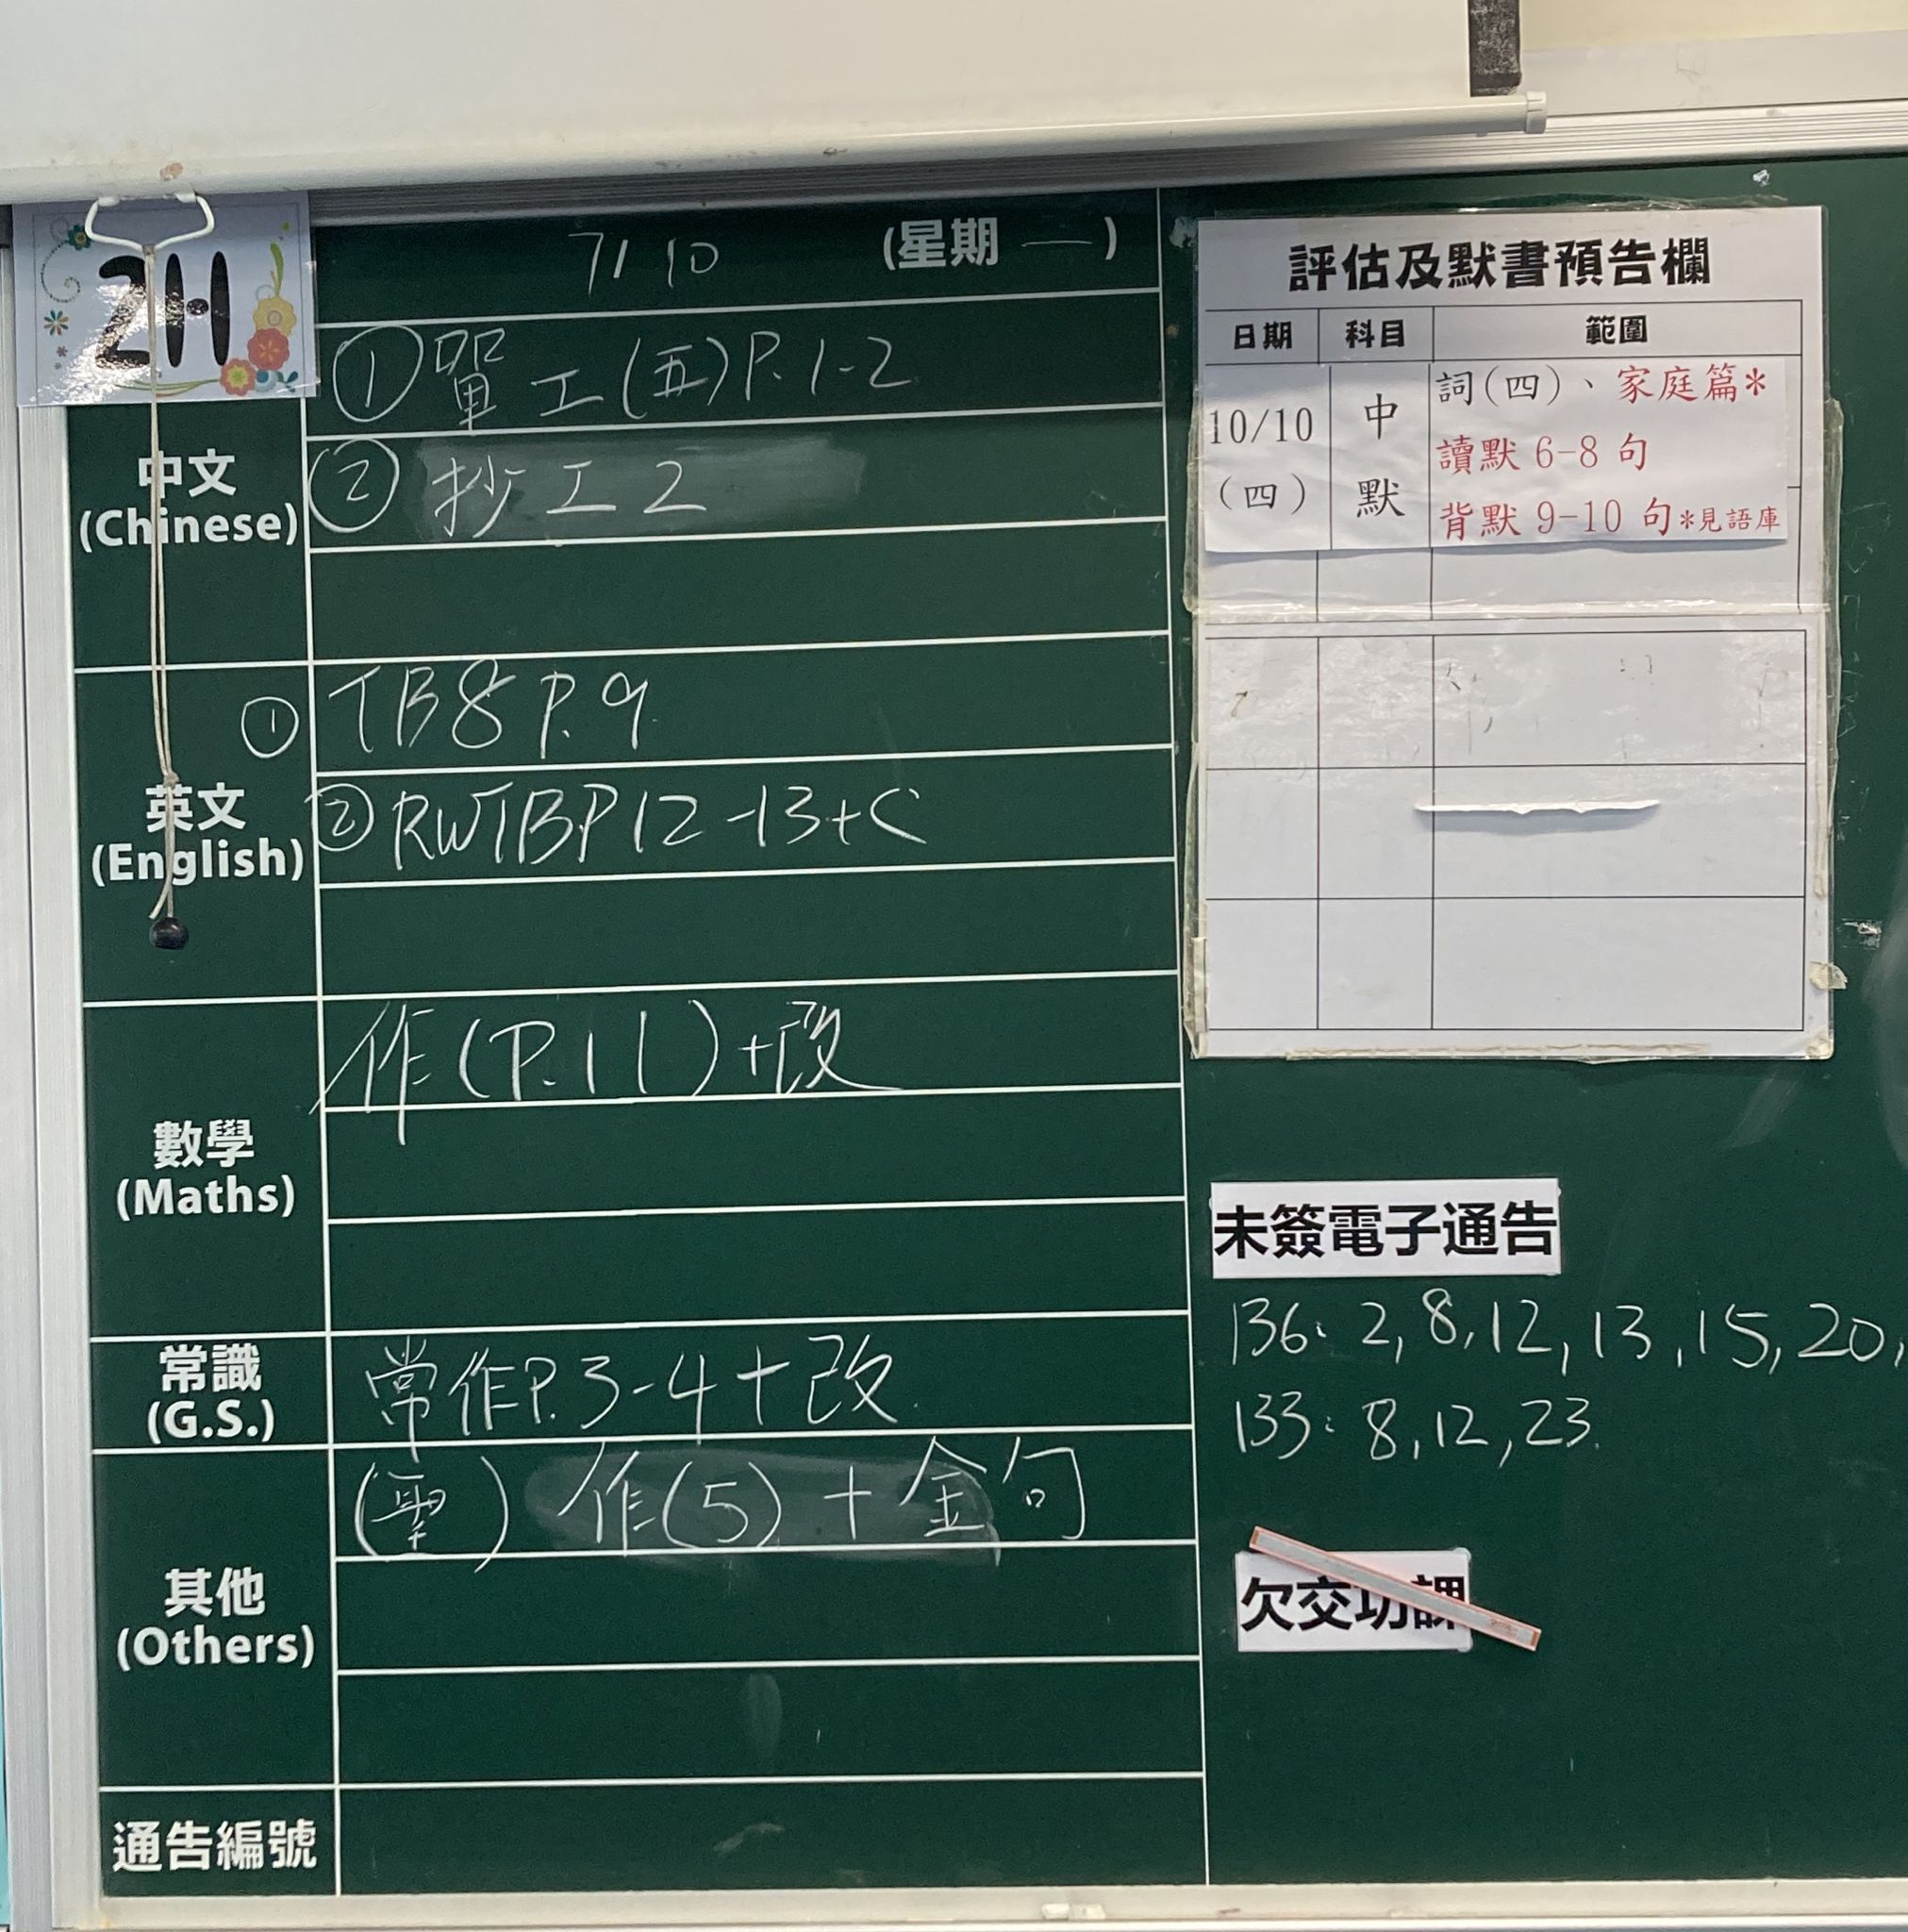 2H
7/10 (星期 一)
中文
(Chinese)
① 單工(五)P.1-2
② 抄工2
英文
(English)
① TB8 P.9
② RWTB P12-13+C
數學
(Maths)
作(P.11)+改
常識
(G.S.)
常作P.3-4+改
其他
(Others)
(聖) 作(5)+金句
通告編號
評估及默書預告欄
日期 科目 範圍
10/10 (四) 中默 詞(四)、家庭篇*
讀默 6-8 句
背默 9-10 句*見語庫
未簽電子通告
136: 2, 8, 12, 13, 15, 20,
133: 8, 12, 23.
欠交功課